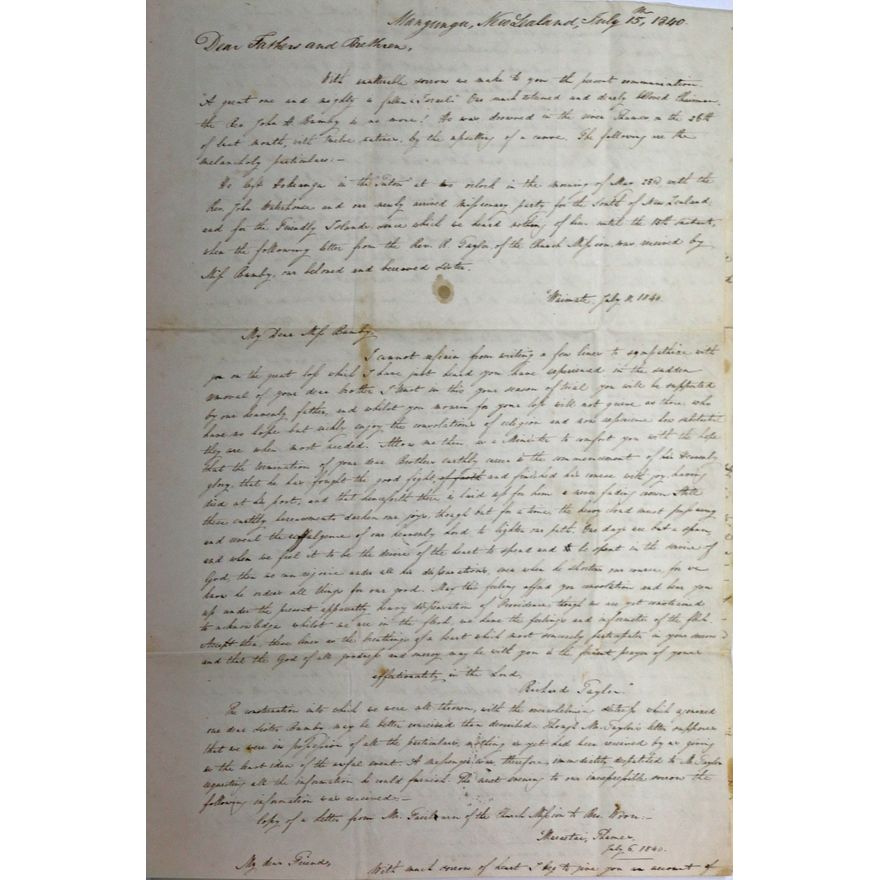 Mangungu, New Zealand, July 15th, 1840.
Dear Fathers and Brethren,
With unutterable sorrow we make to you the present communication.
"A great one and mighty is fallen in Israel." Our much esteemed and dearly beloved Chairman,
the Rev. John H. Bumby is no more! He was drowned in the river Thames on the 26th
of last month, with twelve natives, by the upsetting of a canoe. The following are the
melancholy particulars:—
He left Hokianga in the "Triton" at two o'clock in the morning of May 22d with the
Rev. John Waterhouse and our newly arrived missionary party for the South of New Zealand
and for the Friendly Islands, since which we heard nothing of him until the 13th instant,
when the following letter from the Rev. R. Taylor, of the Church Mission, was received by
Miss Bumby, our beloved and bereaved sister.
"Waimate, July 11. 1840.
My Dear Miss Bumby,
I cannot refrain from writing a few lines to sympathise with
you on the great loss which I have just heard you have experienced in the sudden
removal of your dear brother. I trust in this your season of trial you will be supported
by our heavenly father, and whilst you mourn for your loss will not grieve as those who
have no hope but richly enjoy the consolations of religion and now experience how substantial
they are when most needed. Allow me then, as a Minister to comfort you with the hope
that the termination of your dear Brother's earthly career is the commencement of his Heavenly
glory, that he has fought the good fight, of faith and finished his course with joy, having
died at his post, and that henceforth there is laid up for him a never fading crown.
these earthly bereavements darken our joys, though but for a time, the heavy cloud must
and reveal the effulgence of our heavenly Lord to lighten our path. Our days are but a span,
and when we feel it to be the desire of the heart to spend and to be spent in the service of
God, then we can rejoice under all his dispensations, even when he shortens our course, for we
know he orders all things for our good. May this feeling afford you consolation and bear you
up under the present apparently heavy dispensation of Providence, though we are yet constrained
to acknowledge whilst we are in the flesh, we have the feelings and infirmities of the flesh.
Accept then, these lines as the breathings of a heart which most sincerely participates in your sorrow
and that the God of all goodness and mercy may be with you is the fervent prayer of yours
affectionately in the Lord,
Richard Taylor."
The consternation into which we were all thrown, with the overwhelming distress which
our dear Sister Bumby may be better conceived than described. Though Mr. Taylor's letter supposes
that we were in possession of all the particulars, nothing as yet had been received by us giving
us the least idea of the awful event. A messenger was therefore immediately dispatched to Mr. Taylor
requesting all the information he could furnish. The next evening to our inexpressible sorrow the
following information was received:—
Copy of a letter from Mr. Fairburn of the Church Mission to Rev. Woon:—
"Maraetai, Thames,
July 6, 1840.
My dear Friends,
With much sorrow of heart I beg to give you an account of